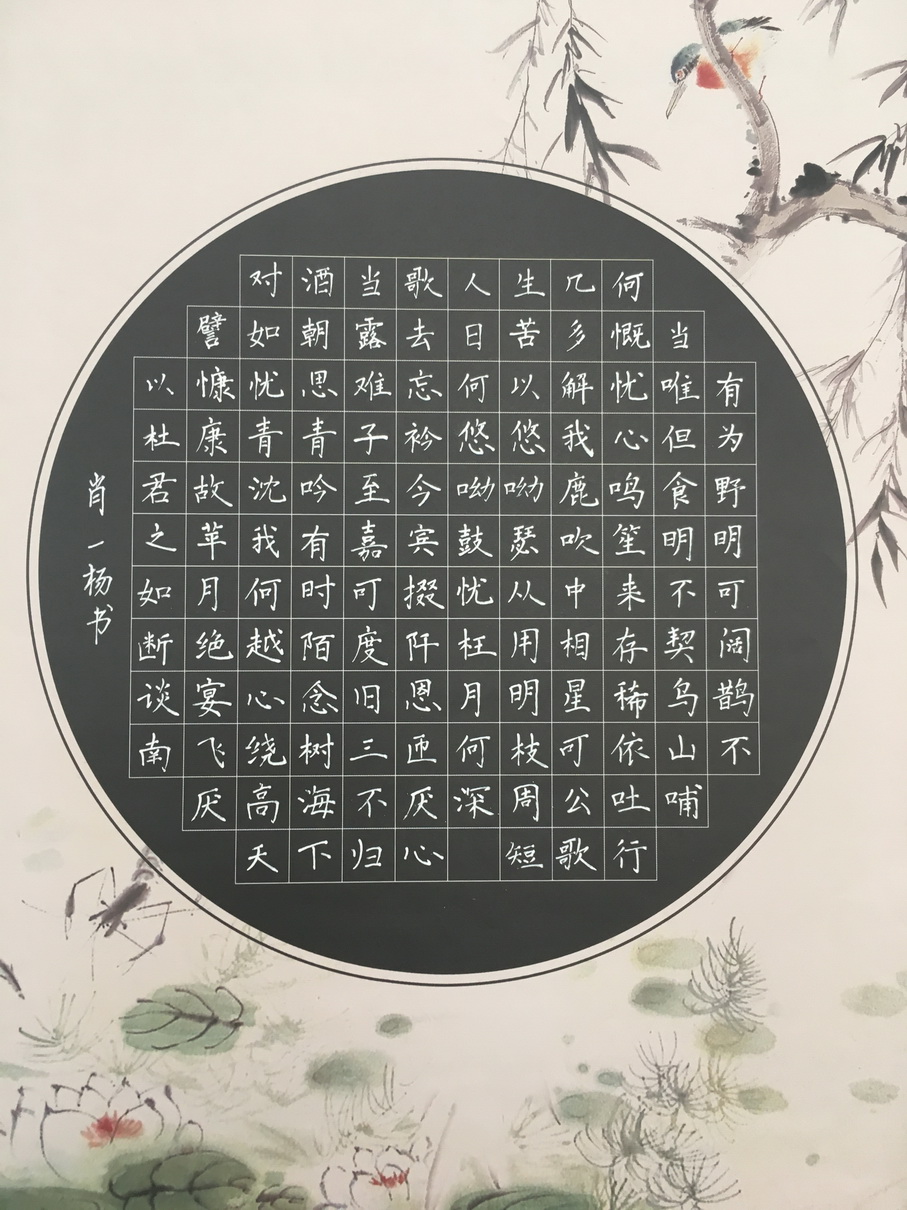 对酒当歌人生几何
譬如朝露去日苦多慨当
以慷忧思难忘何以解忧唯有
杜康青青子衿悠悠我心但为
君故沈吟至今呦呦鹿鸣食野
之苹我有嘉宾鼓瑟吹笙明明
如月何时可掇忧从中来不可
断绝越陌度阡枉用相存契阔
谈宴心念旧恩月明星稀乌鹊
南飞绕树三匝何枝可依山不
厌高海不厌深周公吐哺
天下归心 短歌行
肖一杨书